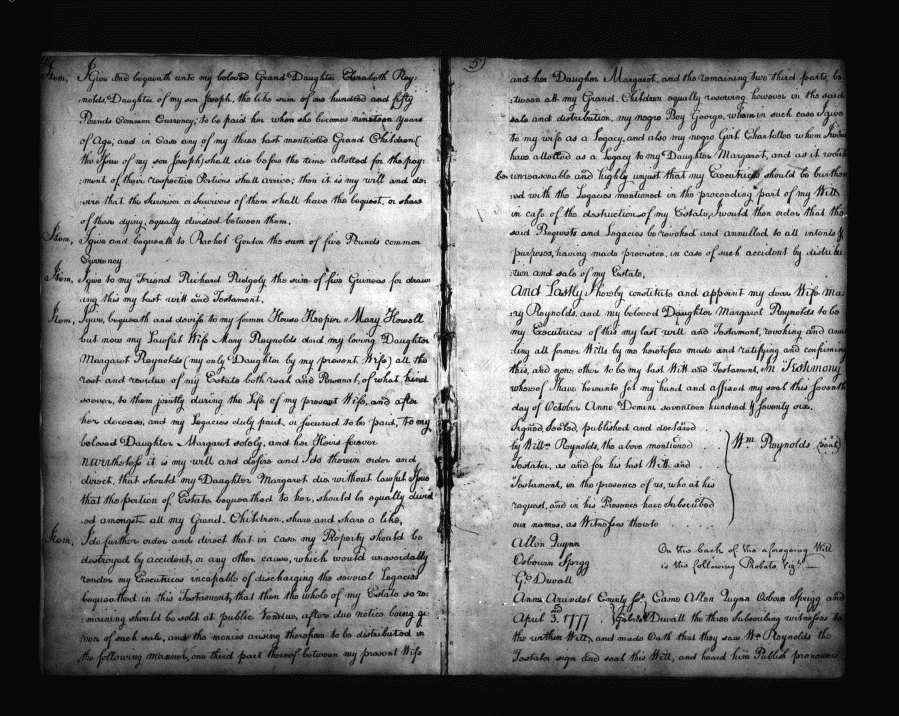 Item, I Give and bequeath unto my beloved Grand Daughter Elizabeth Rey=
nolds, Daughter of my son Joseph, the like sum of one hundred and fifty
Pounds Common Currency; to be paid her when she becomes nineteen years
of Age; and in case any of my three last mentioned Grand Children (
the Issue of my son Joseph) shall die before the time allotted for the pay:
ment of their respective Portions shall arrive; then it is my will and de:
sire that the Survivor or Survivors of them shall have the bequest, or share
of those dying, equally divided between them.
Item, I give and bequeath to Rachel Gorton the sum of five Pounds common
Currency
Item, I give to my Friend Richard Ridgely the sum of five Guineas for draw
ing this my last will and Testament.
Item, I give, bequeath and devise to my former House Keeper Mary Howell
but now my Lawful Wife Mary Reynolds and my loving Daughter
Margaret Reynolds (my only Daughter by my present Wife) all the
rest and residue of my Estate both real and Personal, of what kind
soever, to them jointly during the Life of my present Wife, and after
her decease, and my Legacies duly paid, or secured to be paid, to my
beloved Daughter Margaret solely, and her Heirs forever
nevertheless it is my will and desire and I do therein order and
direct, that should my Daughter Margaret die without lawful Issue
that the portion of Estate bequeathed to her, should be equally divid
ed amongst all my Grand Children, share and share a like,
Item, I do further order and direct that in case my Property should be
destroyed by accident, or any other cause, which would unavoidably
render my Executrices incapable of discharging the several Legacies
bequeathed in this Testament, that then the whole of my Estate so re:
maining should be sold at public Vendue, after due notice being gi
ven of such sale, and the monies arising therefrom to be distributed in
the following manner, one third part thereof between my present Wife
5
and her Daugher Margaret, and the remaining two third parts be
tween all my Grand Children equally reserving however in the said
sale and distribution, my negro Boy George, whom in such case I give
to my wife as a Legacy, and also my negro Girl Charlotte whom I
have allotted as a legacy to my Daughter Margaret, and as it would
be unreasonable and highly unjust that my Executrices should be burthen
ed with the Legacies mentioned in the preceeding part of my Will
in case of the destruction of my Estate, I would then order that the
said Bequests and Legacies be revoked and annulled to all intents &
purposes, having made provision, in case of such accident by distribu
tion and sale of my Estate.
And Lastly I hereby constitute and appoint my dear Wife Ma
ry Reynolds, and my beloved Daughter Margaret Reynolds to be
my Executrices of this my last will and Testament, revoking and anu
lling all former Wills by me heretofore made and ratifying and confirming
this, and none other to be my last Will and Testament, In Testimony
whereof I have hereunto set my hand and affixed my seal this seventh
day of October Anno Domini seventeen hundred & seventy six.
Signed, Sealed, published and declared
by Willm. Reynolds, the above mentioned
Testator, as and for his last Will and
Testament, in the presence of us, who at his
request, and in his Presence have subscribed
our names, as Witnesses thereto
Wm. Reynolds (seal)
Allen Quynn
Osbourn Sprigg
Go. Duvall
On the back of the aforegoing Will
is the following Probate, Vizt.
Anne Arundel County Sst. Came Allen Quynn Osborn Sprigg and
April 3d. 1777 Duvall the three Subscribing witnesses to
the within Will, and made Oath that they saw Wm. Reynolds the
Testator sign and seal this Will, and heard him Publish pronounce